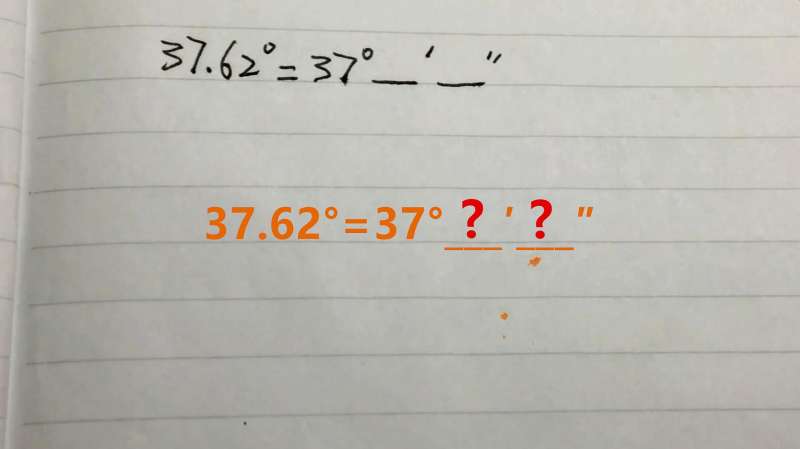 37.62°=37°__′__″
37.62°=37°_?_′_?_″